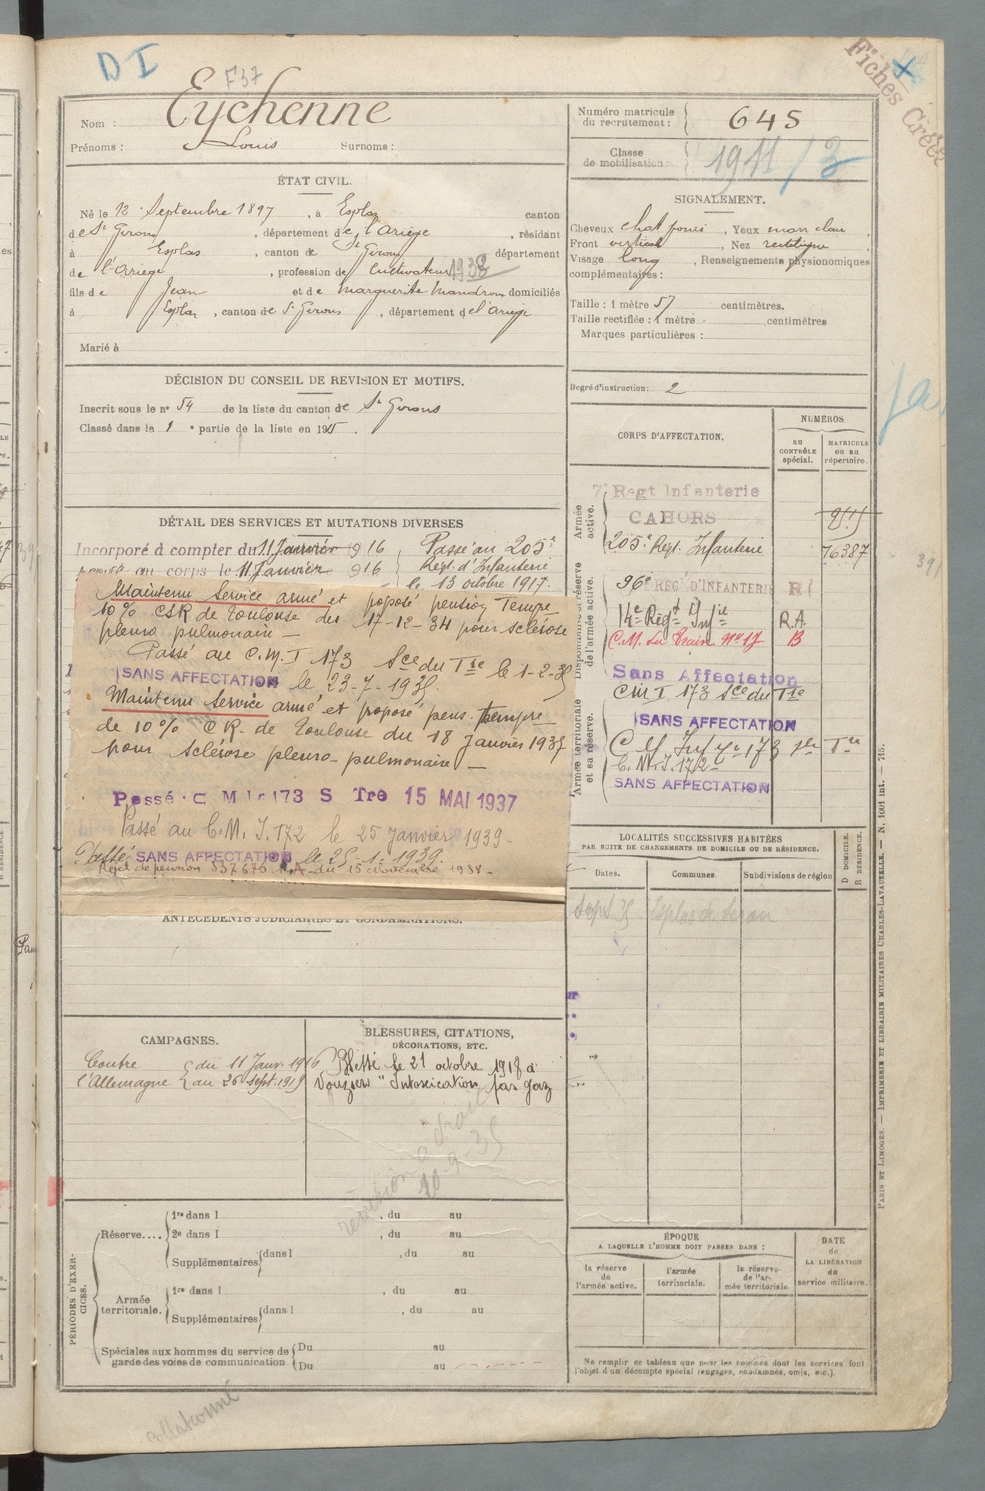 D I
F37
Fiches Créé
Nom : Eychenne
Prénoms : Louis Surnoms :
Numéro matricule du recrutement : 645
Classe de mobilisation : 1911/3
ÉTAT CIVIL.
Né le 12 Septembre 1897, à Esplas canton
de St Girons, département de l'Ariège, résidant
à Esplas, canton de St Girons département
de l'Ariège, profession de cultivateur 1938
fils de Jean et de Marguerite Mandrou domiciliés
à Esplas, canton de St Girons, département de l'Ariège
Marié à
SIGNALEMENT.
Cheveux chat foncé, Yeux marr clair,
Front vertical, Nez rectiligne
Visage long, Renseignements physionomiques
complémentaires :
Taille : 1 mètre 57 centimètres.
Taille rectifiée : 1 mètre centimètres
Marques particulières :
Degré d'instruction : 2
DÉCISION DU CONSEIL DE REVISION ET MOTIFS.
Inscrit sous le n° 54 de la liste du canton de St Girons
Classé dans la 1e partie de la liste en 1915.
DÉTAIL DES SERVICES ET MUTATIONS DIVERSES
Incorporé à compter du 11 Janvier 1916
Arrivé au corps le 11 Janvier 1916
Passé au 205e
Regt. d'Infanterie
le 13 octobre 1917.
Maintenu Service armé et proposé pension Tempre
10 % CSR de Toulouse du 17-12-34 pour sclérose
pleuro pulmonaire —
Passé au C.M.I 173 Sce du Tre le 1-2-35
SANS AFFECTATION le 23-7-1935.
Maintenu Service armé et proposé pens. tempre
de 10 % C R. de Toulouse du 18 janvier 1937
pour sclérose pleuro-pulmonaire —
Passé C M I 173 S Tre 15 MAI 1937
Passé au C.M.I. 172 le 25 janvier 1939.
Passé SANS AFFECTATION le 25-1-1939.
Rejet de pension 337676 du 15 Novembre 1938 -
ANTÉCÉDENTS JUDICIAIRES ET CONDAMNATIONS.
CORPS D'AFFECTATION.
NUMÉROS
AU CONTRÔLE spécial.
MATRICULE OU AU répertoire.
Armée active.
7e Regt Infanterie
CAHORS
205e Regt. Infanterie 76387
Disponibilité et réserve de l'armée active.
96e REG D'INFANTERIE R
14e Regt Infie R.A.
C.M. du Train N° 17 B
Sans Affectation
CM I 173 Sce du Tre
Armée territoriale et sa réserve.
SANS AFFECTATION
C.M.I. 172
SANS AFFECTATION
LOCALITÉS SUCCESSIVES HABITÉES
PAR SUITE DE CHANGEMENTS DE DOMICILE OU DE RÉSIDENCE.
Dates. Communes Subdivisions de région
D DOMICILE.
R RÉSIDENCE.
Sept 35 Esplas de Serou
CAMPAGNES.
Contre l'Allemagne du 11 Janv. 1916
au 26 Sept. 1919
BLESSURES, CITATIONS,
DÉCORATIONS, ETC.
Blessé le 21 octobre 1918 à
Vouziers "Intoxication par gaz
révision a droit
10-9-35
PÉRIODES D'EXERCICES.
Réserve....
1re dans l , du au
2e dans l , du au
Supplémentaires dans l , du au
Armée territoriale.
1re dans l , du au
Supplémentaires dans l , du au
Spéciales aux hommes du service de garde des voies de communication
Du au
Du au
ÉPOQUE
A LAQUELLE L'HOMME DOIT PASSER DANS :
la réserve de l'armée active.
l'armée territoriale.
la réserve de l'armée territoriale.
DATE de LA LIBÉRATION du service militaire.
Ne remplir ce tableau que pour les hommes dont les services font
l'objet d'un décompte spécial (engagés, condamnés, omis, etc.).
PARIS ET LIMOGES. — IMPRIMERIE ET LIBRAIRIE MILITAIRES CHARLES-LAVAUZELLE. — N. 1001 int. — 715.
collationné